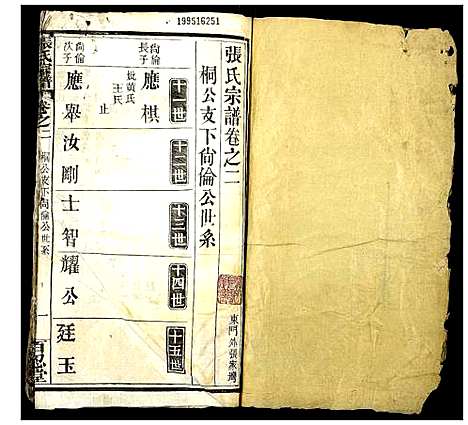 199516251
張氏宗譜卷之二
桐公支下尙倫公世系
東門外張家灣
十一世
十二世
十三世
十四世
十五世
尙倫長子
應棋
妣黄氏
王氏
止
尙倫次子
應舉
汝剛
士智
耀公
廷玉
張氏宗譜
卷之二
桐公支下尙倫公世系
一
百忍堂